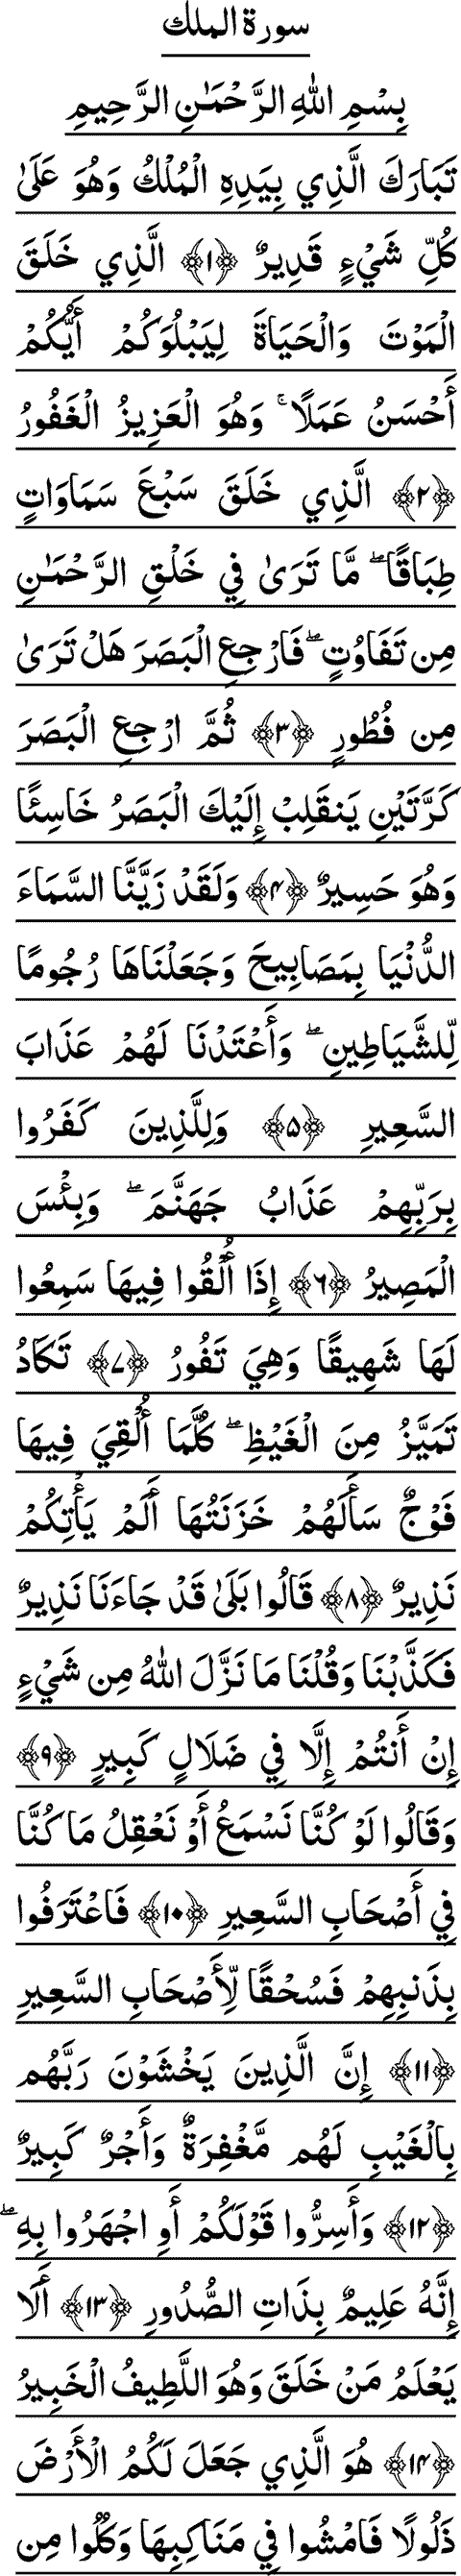 سورة الملك
بِسْمِ اللهِ الرَّحْمَٰنِ الرَّحِيمِ
تَبَارَكَ الَّذِي بِيَدِهِ الْمُلْكُ وَهُوَ عَلَىٰ
كُلِّ شَيْءٍ قَدِيرٌ ﴿۱﴾ الَّذِي خَلَقَ
الْمَوْتَ وَالْحَيَاةَ لِيَبْلُوَكُمْ أَيُّكُمْ
أَحْسَنُ عَمَلًا ۚ وَهُوَ الْعَزِيزُ الْغَفُورُ
﴿۲﴾ الَّذِي خَلَقَ سَبْعَ سَمَاوَاتٍ
طِبَاقًا ۖ مَّا تَرَىٰ فِي خَلْقِ الرَّحْمَٰنِ
مِن تَفَاوُتٍ ۖ فَارْجِعِ الْبَصَرَ هَلْ تَرَىٰ
مِن فُطُورٍ ﴿۳﴾ ثُمَّ ارْجِعِ الْبَصَرَ
كَرَّتَيْنِ يَنقَلِبْ إِلَيْكَ الْبَصَرُ خَاسِئًا
وَهُوَ حَسِيرٌ ﴿۴﴾ وَلَقَدْ زَيَّنَّا السَّمَاءَ
الدُّنْيَا بِمَصَابِيحَ وَجَعَلْنَاهَا رُجُومًا
لِّلشَّيَاطِينِ ۖ وَأَعْتَدْنَا لَهُمْ عَذَابَ
السَّعِيرِ ﴿۵﴾ وَلِلَّذِينَ كَفَرُوا
بِرَبِّهِمْ عَذَابُ جَهَنَّمَ ۖ وَبِئْسَ
الْمَصِيرُ ﴿۶﴾ إِذَا أُلْقُوا فِيهَا سَمِعُوا
لَهَا شَهِيقًا وَهِيَ تَفُورُ ﴿۷﴾ تَكَادُ
تَمَيَّزُ مِنَ الْغَيْظِ ۖ كُلَّمَا أُلْقِيَ فِيهَا
فَوْجٌ سَأَلَهُمْ خَزَنَتُهَا أَلَمْ يَأْتِكُمْ
نَذِيرٌ ﴿۸﴾ قَالُوا بَلَىٰ قَدْ جَاءَنَا نَذِيرٌ
فَكَذَّبْنَا وَقُلْنَا مَا نَزَّلَ اللهُ مِن شَيْءٍ
إِنْ أَنتُمْ إِلَّا فِي ضَلَالٍ كَبِيرٍ ﴿۹﴾
وَقَالُوا لَوْ كُنَّا نَسْمَعُ أَوْ نَعْقِلُ مَا كُنَّا
فِي أَصْحَابِ السَّعِيرِ ﴿۱۰﴾ فَاعْتَرَفُوا
بِذَنبِهِمْ فَسُحْقًا لِّأَصْحَابِ السَّعِيرِ
﴿۱۱﴾ إِنَّ الَّذِينَ يَخْشَوْنَ رَبَّهُم
بِالْغَيْبِ لَهُم مَّغْفِرَةٌ وَأَجْرٌ كَبِيرٌ
﴿۱۲﴾ وَأَسِرُّوا قَوْلَكُمْ أَوِ اجْهَرُوا بِهِ ۖ
إِنَّهُ عَلِيمٌ بِذَاتِ الصُّدُورِ ﴿۱۳﴾ أَلَا
يَعْلَمُ مَنْ خَلَقَ وَهُوَ اللَّطِيفُ الْخَبِيرُ
﴿۱۴﴾ هُوَ الَّذِي جَعَلَ لَكُمُ الْأَرْضَ
ذَلُولًا فَامْشُوا فِي مَنَاكِبِهَا وَكُلُوا مِن